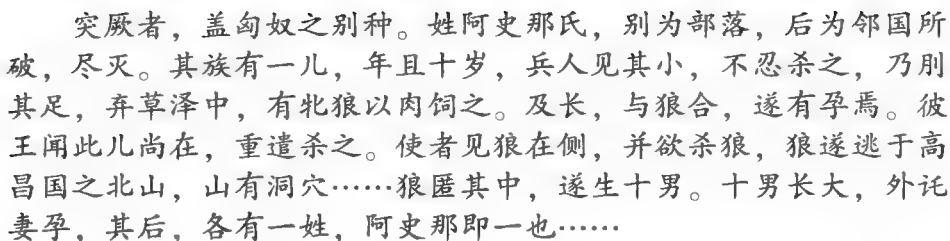 突厥者，盖匈奴之别种。姓阿史那氏，别为部落，后为邻国所
破，尽灭。其族有一儿，年且十岁，兵人见其小，不忍杀之，乃刖
其足，弃草泽中，有牝狼以肉饲之。及长，与狼合，遂有孕焉。彼
王闻此儿尚在，重遣杀之。使者见狼在侧，并欲杀狼，狼遂逃于高
昌国之北山，山有洞穴……狼匿其中，遂生十男。十男长大，外讬
妻孕，其后，各有一姓，阿史那即一也……